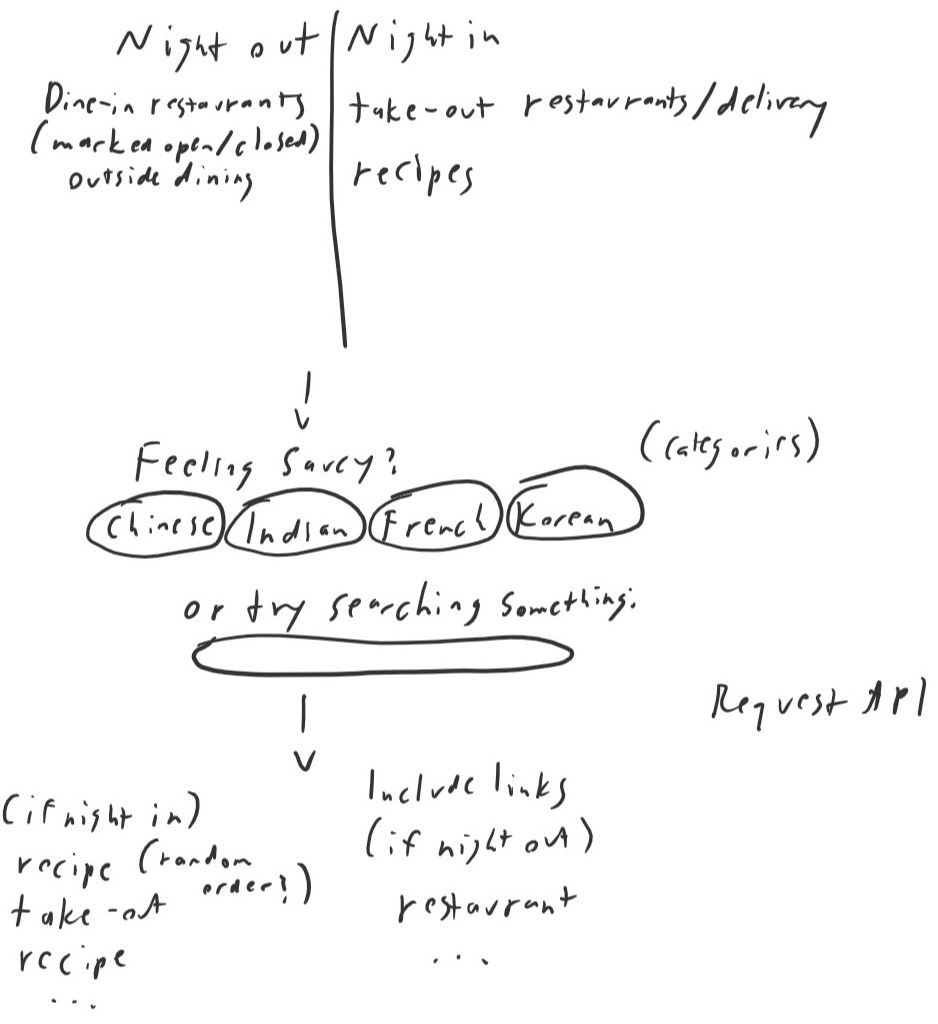 Night out
Dine-in restaurants
(marked open/closed)
outside dining
Night in
take-out restaurants/delivery
recipes
Feeling Saucy?
(categories)
Chinese Indian French Korean
or try searching something:
Request API
(if night in)
recipe (random order?)
take-out
recipe
...
Include links
(if night out)
restaurant
...